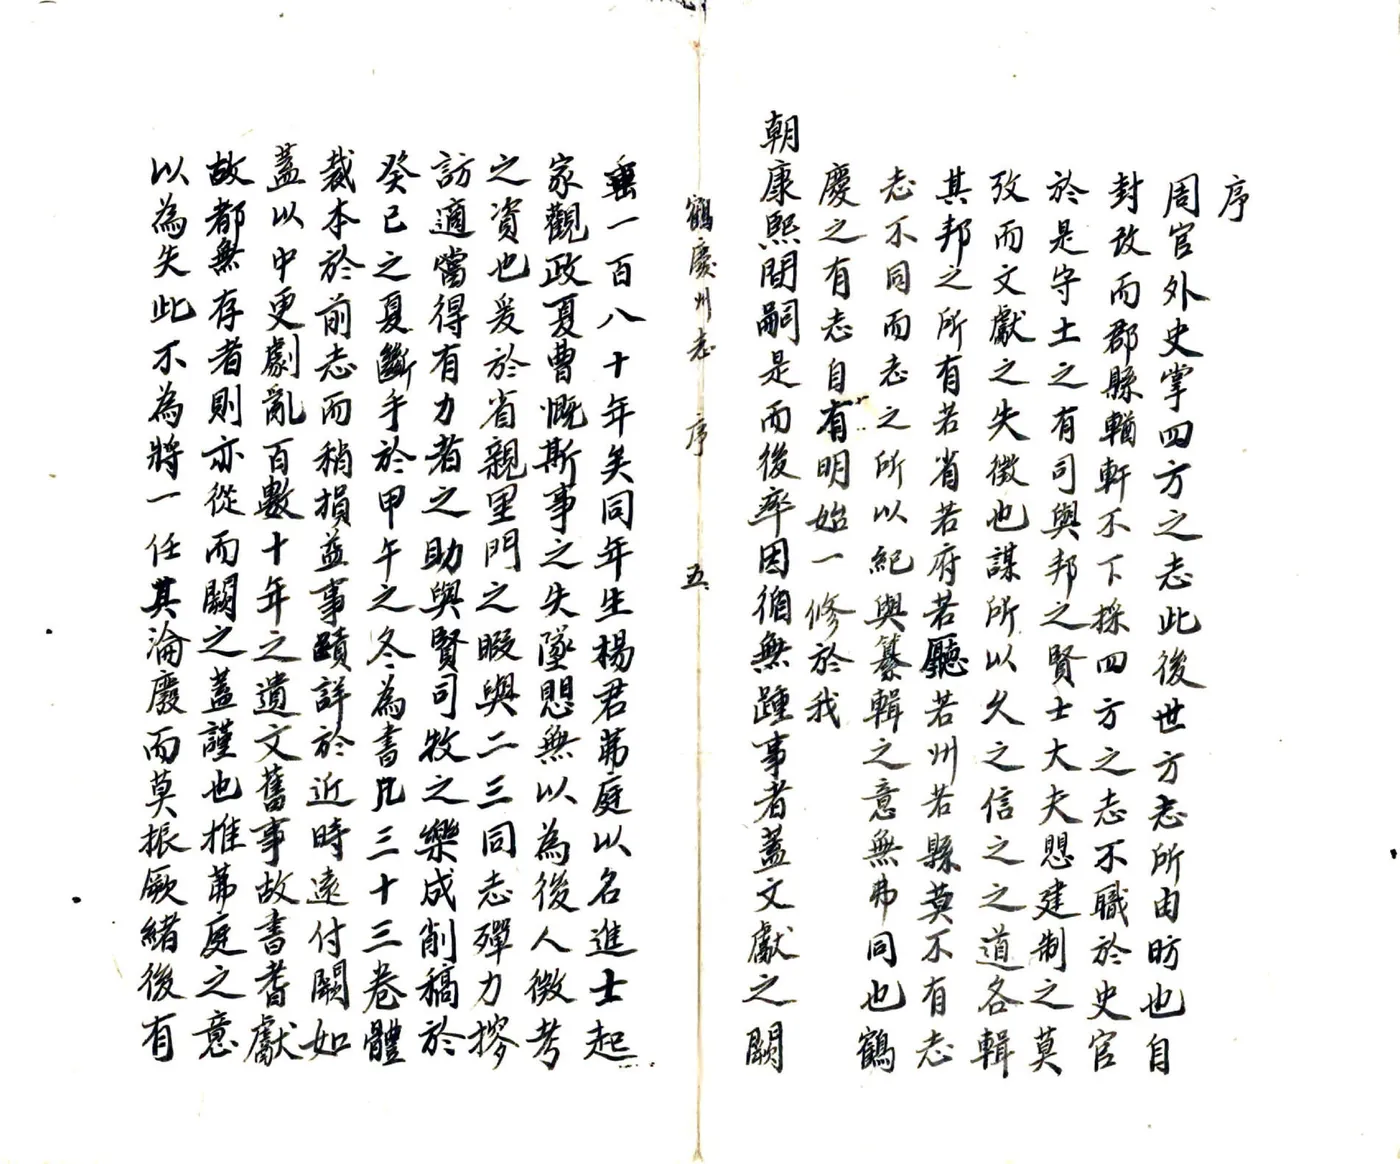 序
周官外史掌四方之志此後世方志所由昉也自
封改而郡縣輶軒不下採四方之志不職於史官
於是守土之有司與邦之賢士大夫愳建制之莫
攷而文獻之失徵也謀所以久之信之之道各輯
其邦之所有若省若府若廳若州若縣莫不有志
志不同而志之所以紀與纂輯之意無弗同也鶴
慶之有志自有明始一修於我
朝康熙間嗣是而後率因循無踵事者蓋文獻之闕
鶴慶州志 序 五
垂一百八十年矣同年生楊君茀庭以名進士起
家觀政夏曹慨斯事之失墜愳無以為後人徵考
之資也爰於省親里門之暇與二三同志殫力摉
訪適嘗得有力者之助與賢司牧之樂成削稿於
癸巳之夏斷手於甲午之冬為書凡三十三卷體
裁本於前志而稍損益事蹟詳於近時遠付闕如
蓋以中更劇亂百數十年之遺文舊事故書耆獻
故都無存者則亦從而闕之蓋謹也推茀庭之意
以為失此不為將一任其淪廢而莫振厥緒後有